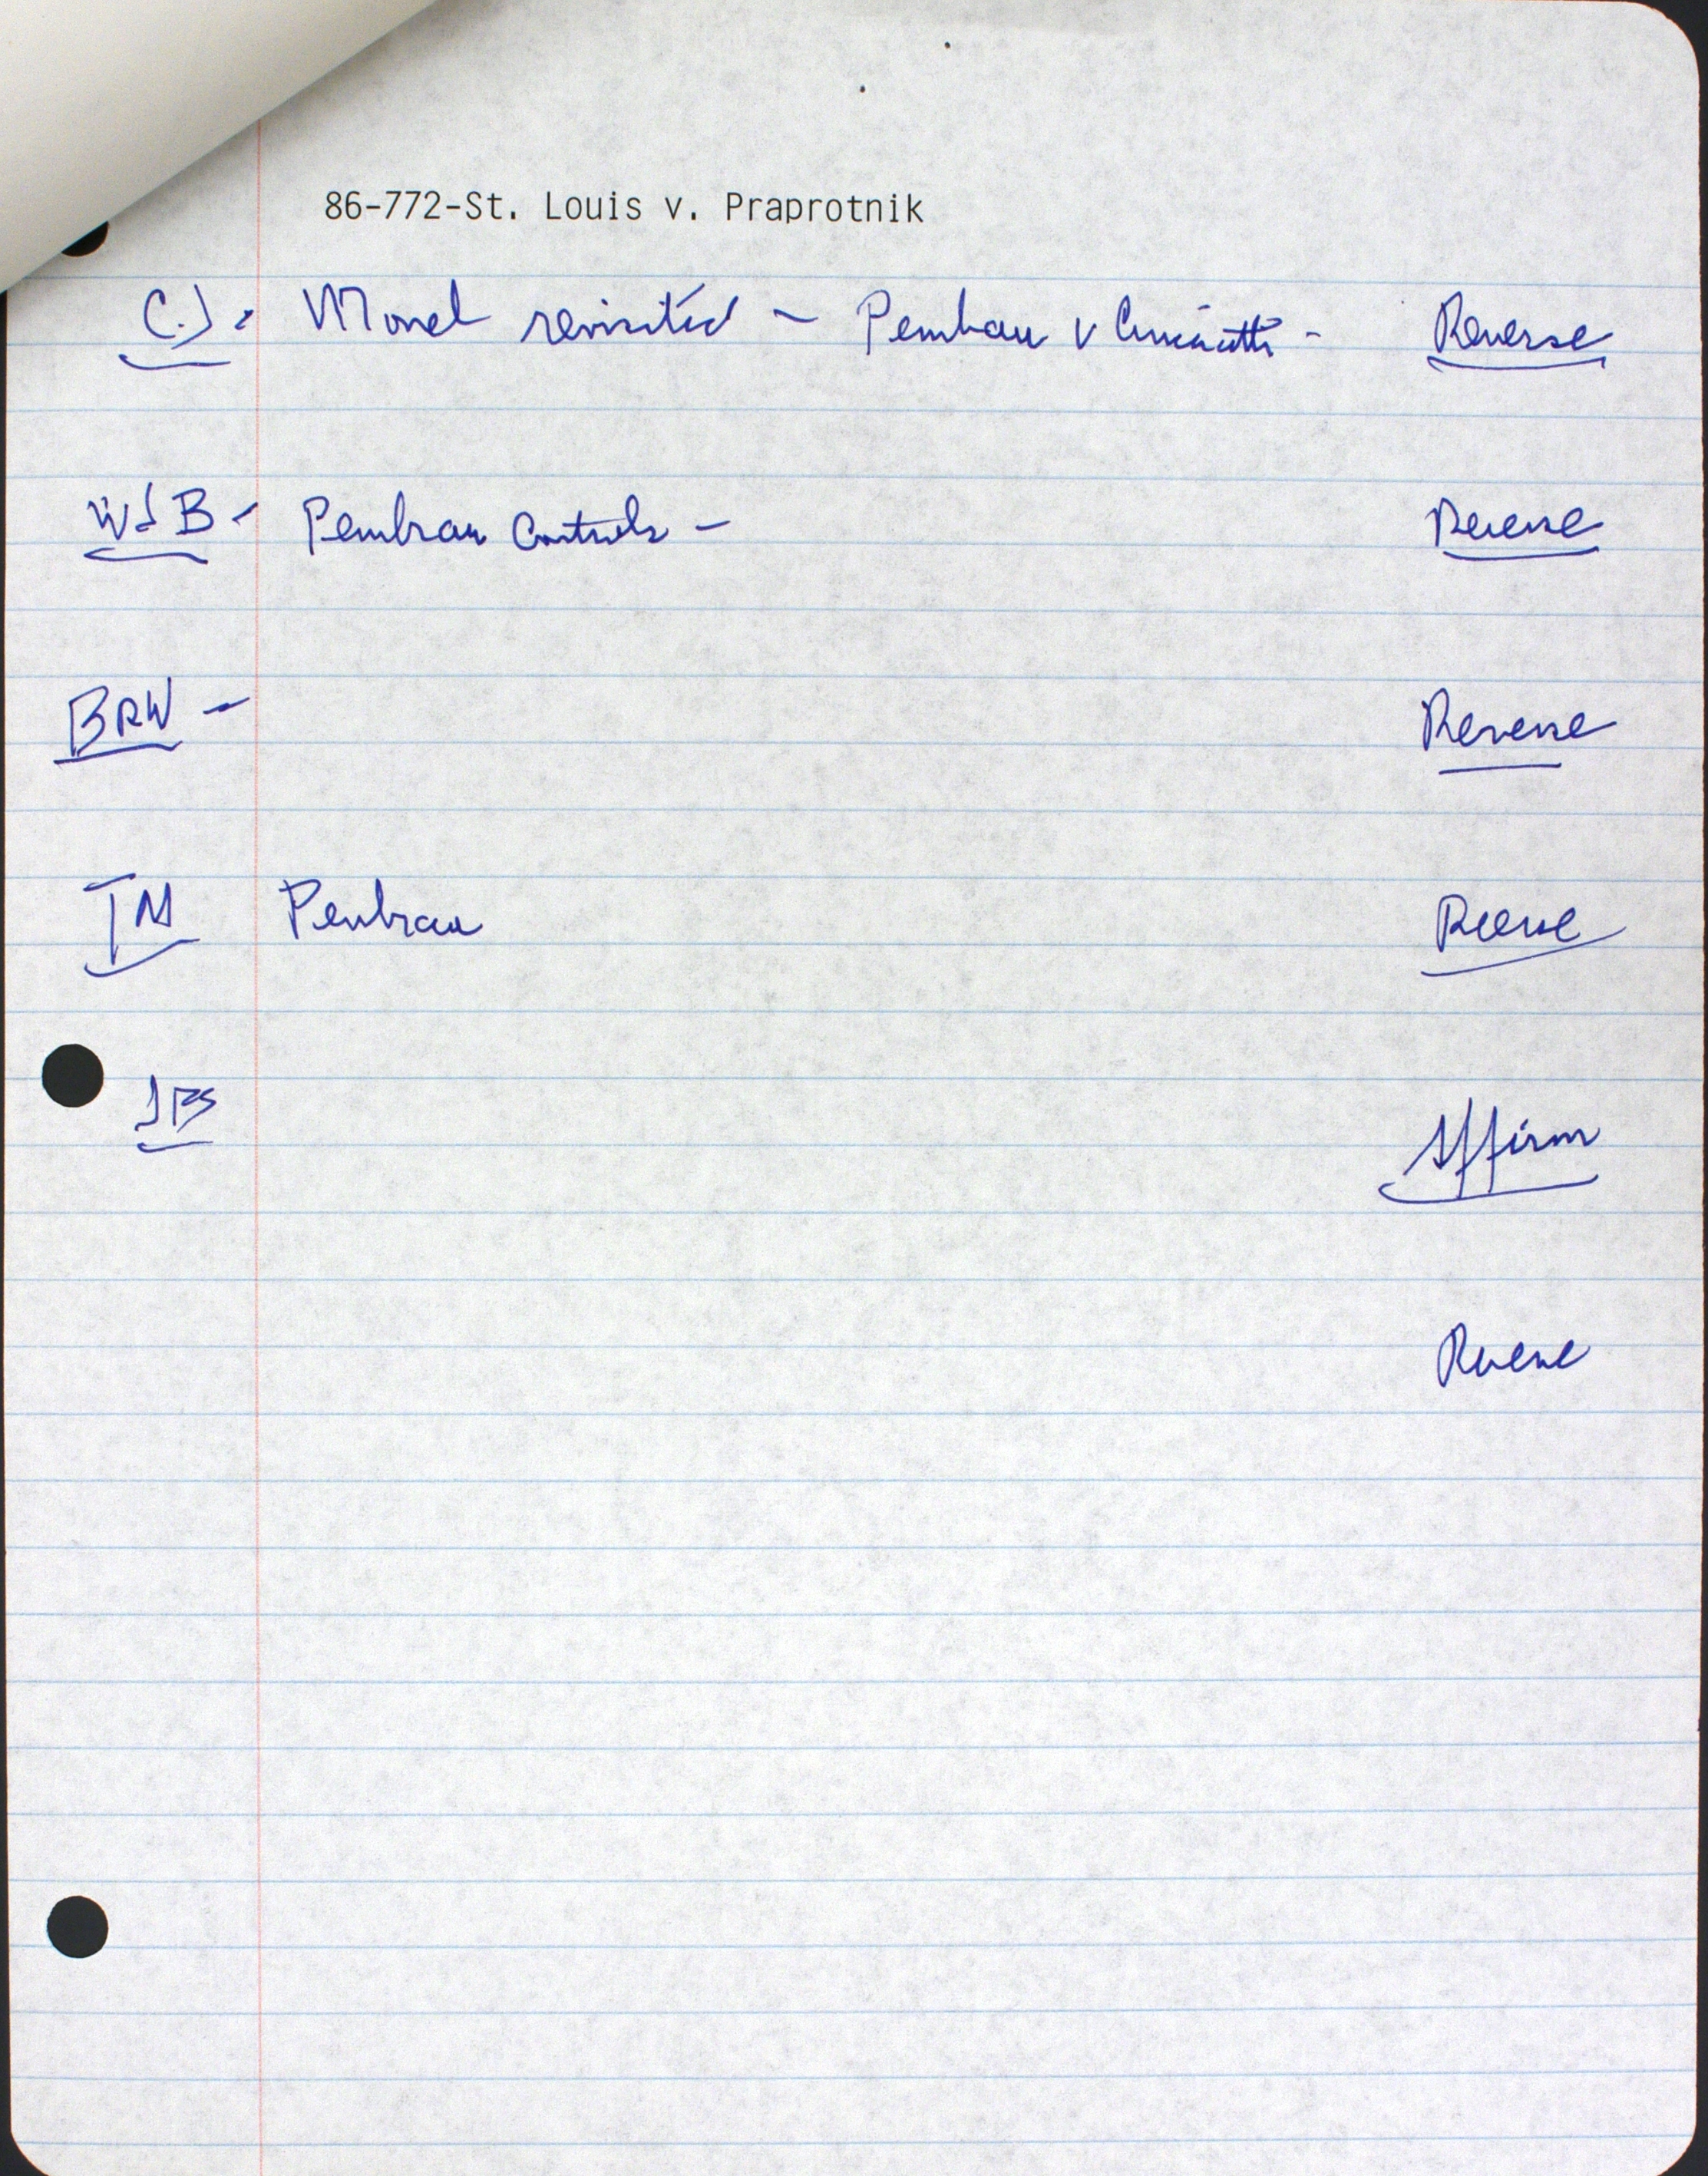 86-772-St. Louis v. Praprotnik
C.J. - Monel revisited - Pembaur v Cincinatti - Reverse
WJB - Pembaur Controls - Reverse
BRW - Reverse
TM Pembaur Reverse
JPS Affirm
Reverse